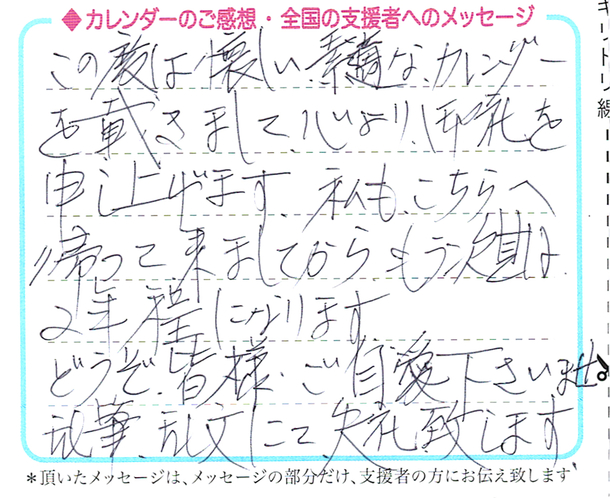 ◆カレンダーのご感想・全国の支援者へのメッセージ
この度は懐しい、素適な、カレンダー
を戴きまして、心より、御礼を
申し上げます、私も、こちらへ
帰って来ましてから、もう次期は
2年程になります
どうぞ、皆様、ご自愛下さいませ。
乱筆、乱文にて、失礼致します
*頂いたメッセージは、メッセージの部分だけ、支援者の方にお伝え致します
キリトリ線